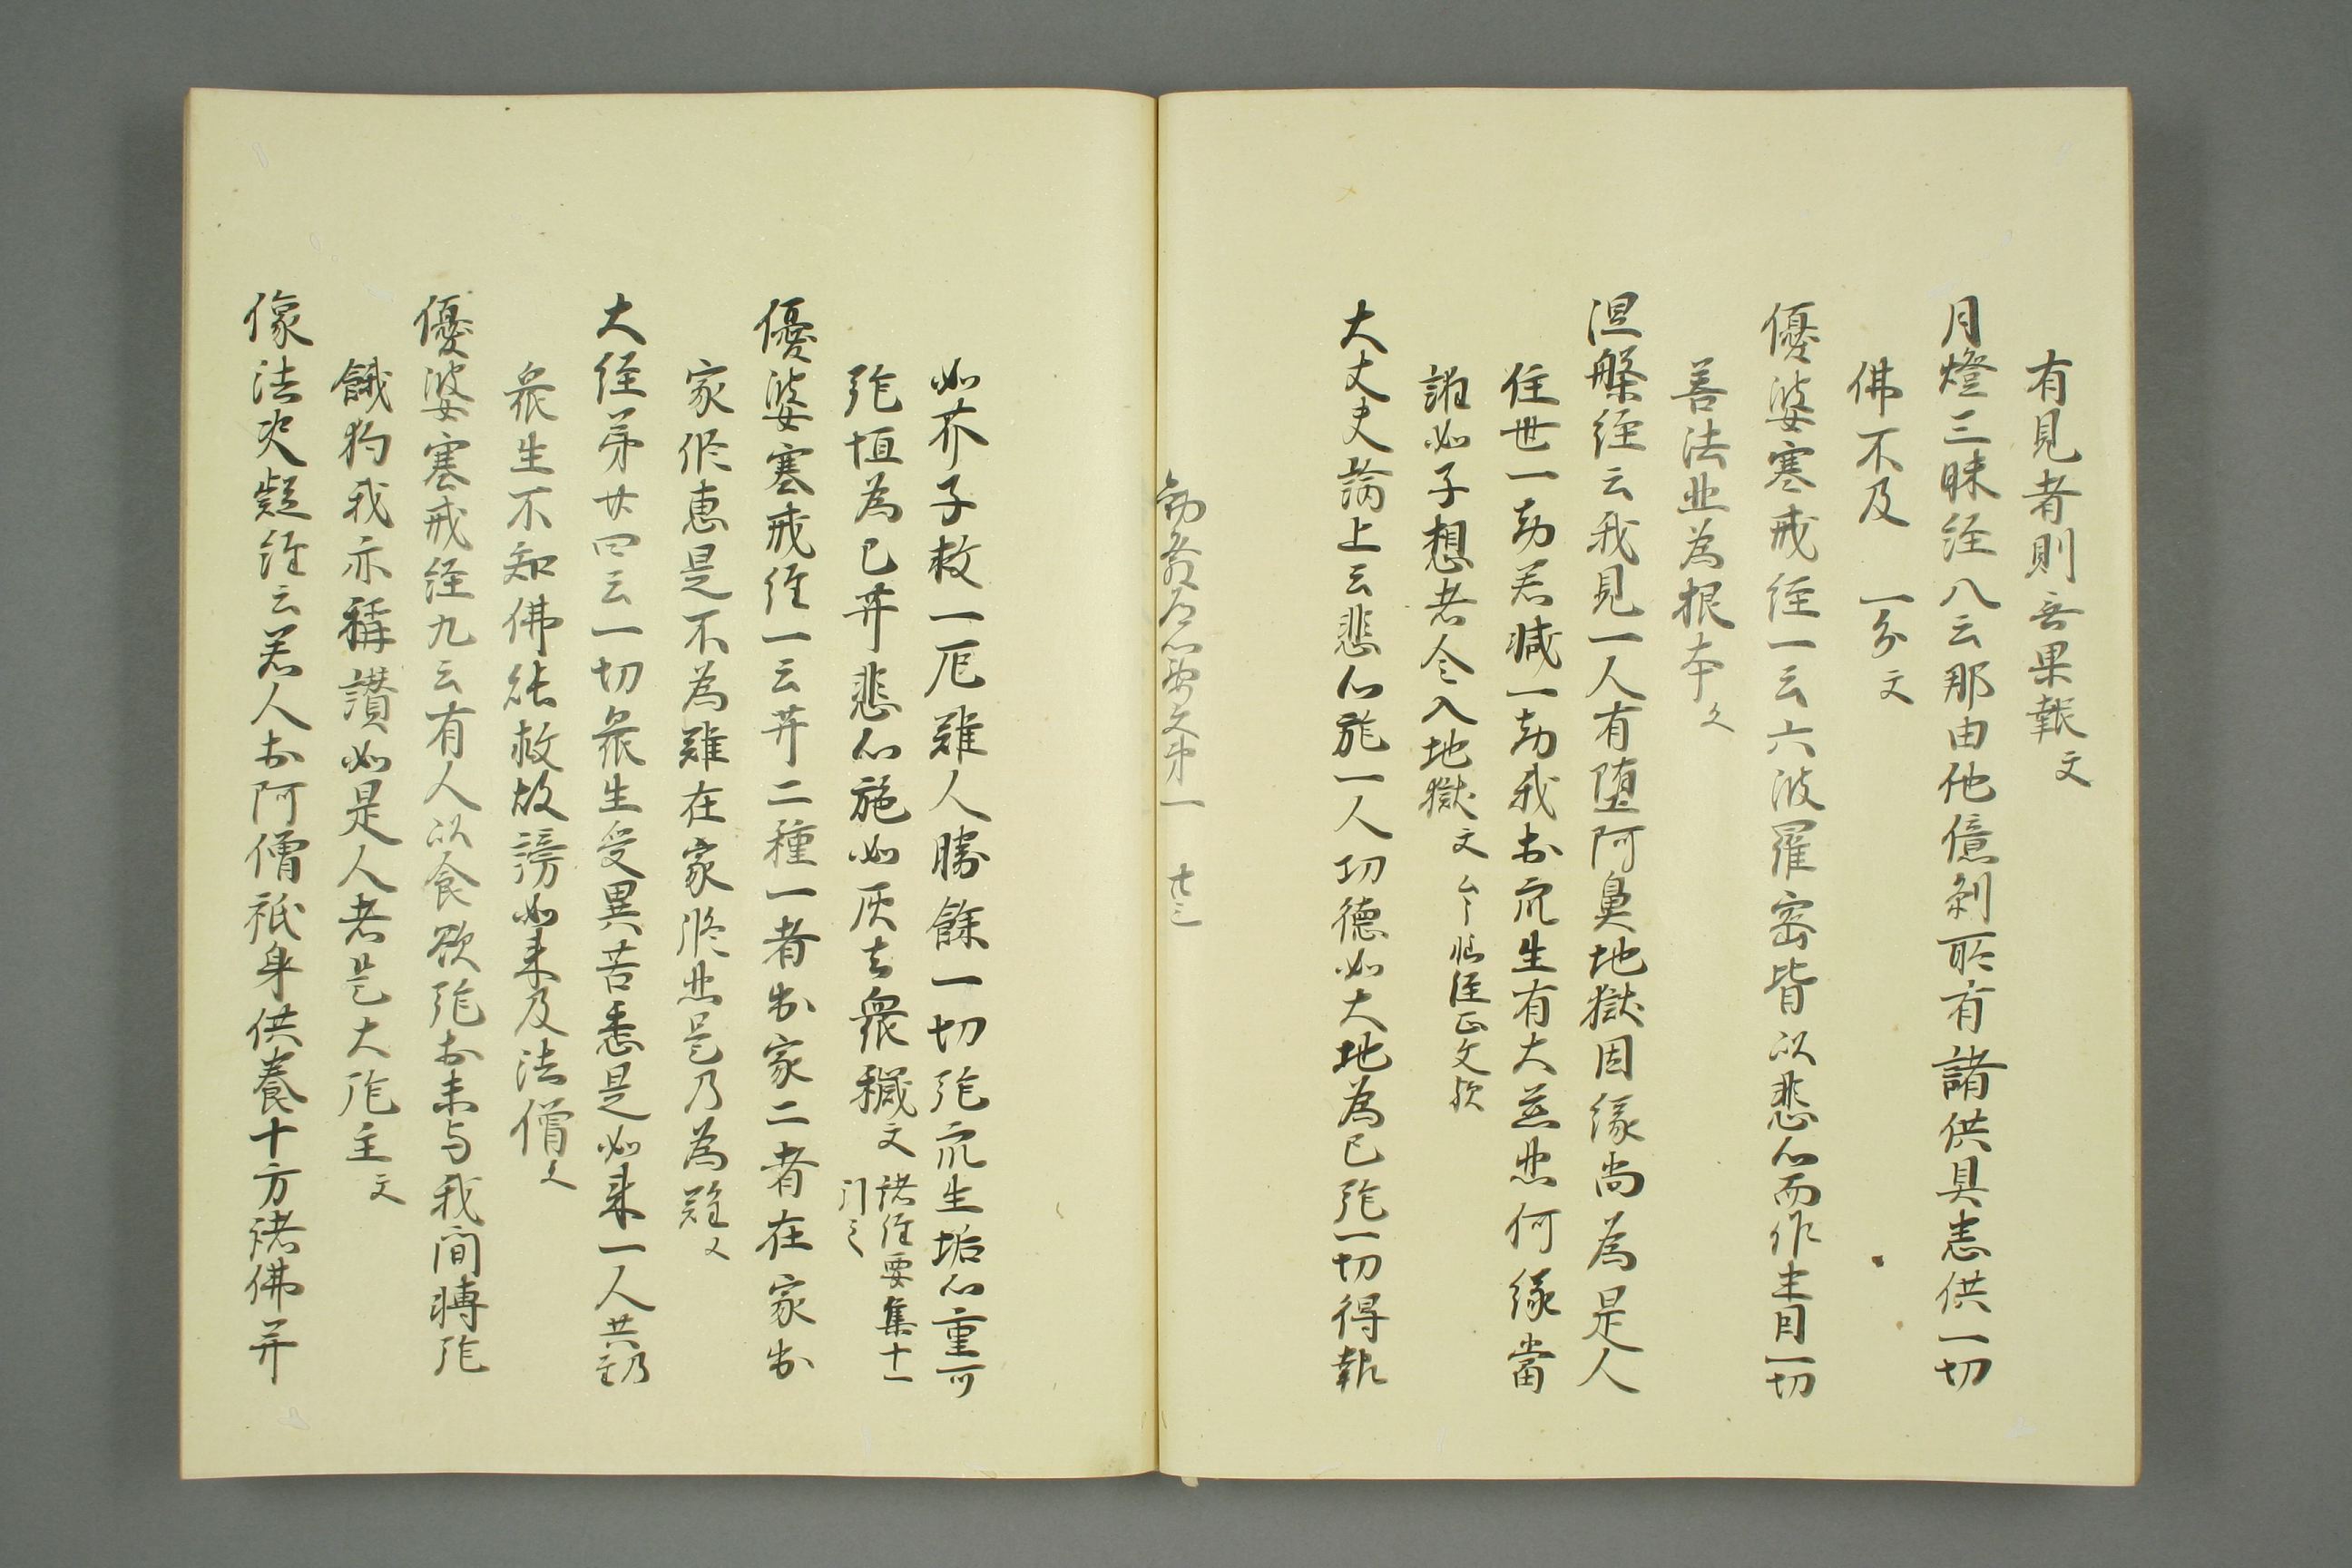 有見者則无果報文
月燈三昧経八云那由他億剎所有諸供具悉供一切
佛不及　一分文
優婆塞戒経一云六波羅密皆以悲心而作生因一切
善法此為根本文
涅槃経云我見一人有堕阿鼻地獄因縁尚為是人
住世一劫若减一劫我於众生有大慈悲何縁當
誰如子想者令入地獄文
大丈夫論上云悲心施一人功德如大地為己施一切得報
勧發菩心要文第一　廿三
如芥子救一厄難人勝餘一切施众生垢心重可
施恒為己并悲心施如灰去衆穢文諸経要集十一
優婆塞戒経一云并二種一者出家二者在家出
家修恵是不為難在家修此是乃為難文
大経第廿四云一切衆生受異苦悉是如来一人共
衆生不知佛能救故謗如来及法僧文
優婆塞戒経九云有人以食欲施於未与我間轉施
餓狗我亦稱讃如是人者是大施主文
像法决疑経云若人於阿僧祇身供養十方諸佛并